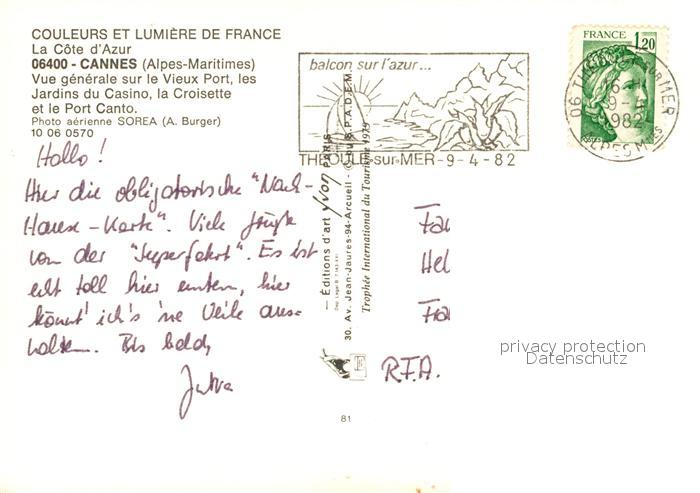 COULEURS ET LUMIÈRE DE FRANCE
La Côte d'Azur
06400 - CANNES (Alpes-Maritimes)
Vue générale sur le Vieux Port, les
Jardins du Casino, la Croisette
et le Port Canto.
Photo aérienne SOREA (A. Burger)
10 06 0570
Hallo!
Hier die obligatorische "Nach-
Hause-Karte". Viele Grüße
von der "Superfahrt". Es ist
echt toll hier unten, hier
könnt' ich's 'ne Weile aus-
halten. Bis bald,
balcon sur l'azur...
THEOULE-sur-MER-9-4-82
FRANCE
1,20
06 THEOULE SUR MER
1982
ALPES MMES
— Éditions d'art yvon PARIS
30. Av. Jean-Jaures-94-Arcueil - © ou S.P.A.D.E.M.
Trophée International du Tourisme 1975
Fa
Hel
R.F.A.
81
privacy protection
Datenschutz